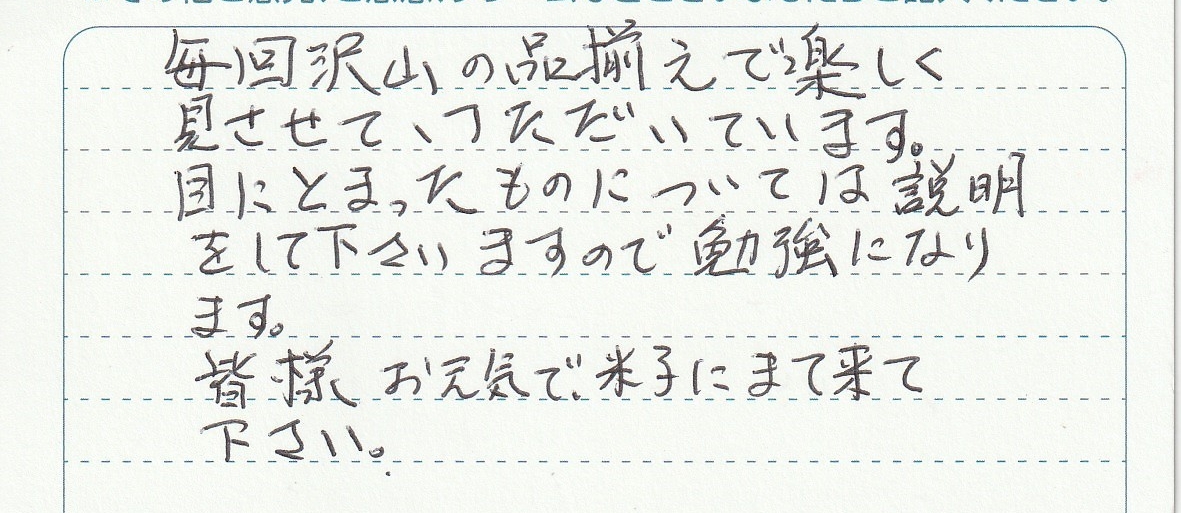 毎回沢山の品揃えで楽しく
見させていただいています。
目にとまったものについては説明
をして下さいますので勉強になり
ます。
皆様お元気で、米子にまて来て
下さい。